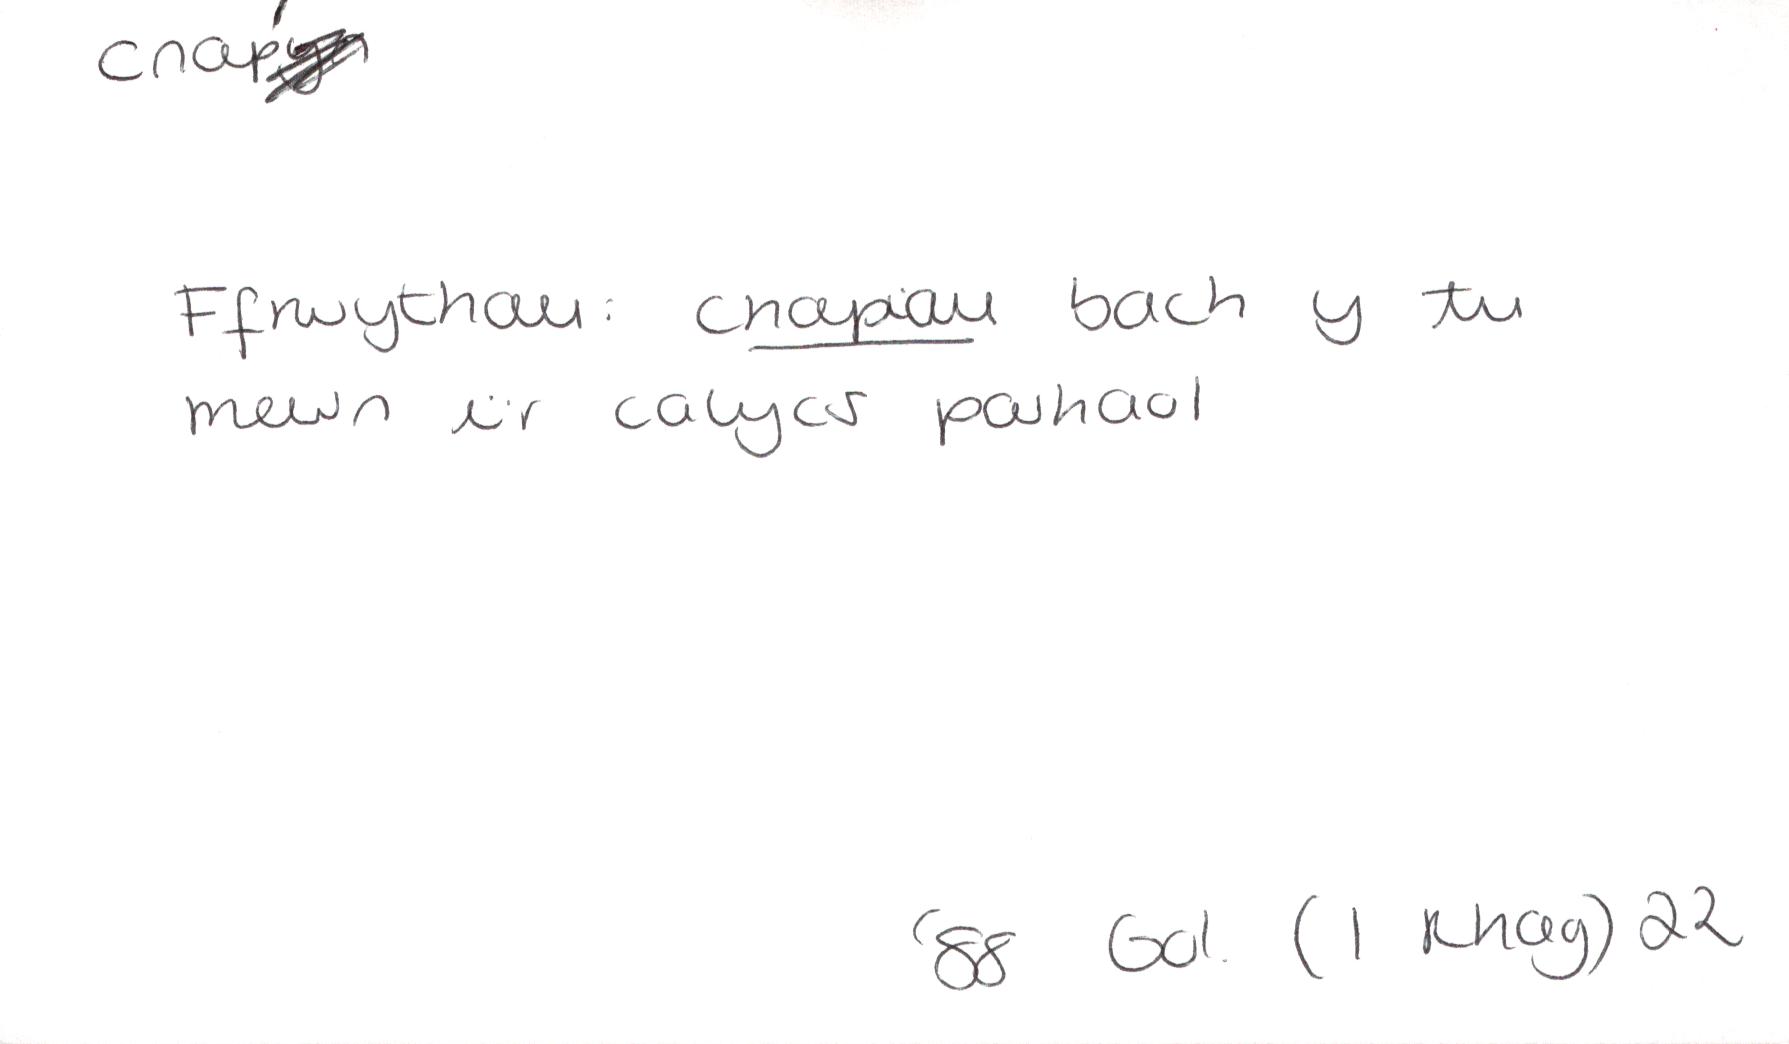 cnap
Ffrwythau: cnapiau bach y tu
mewn i'r calycs parhaol
'88 Gol. (1 Rhag) 22